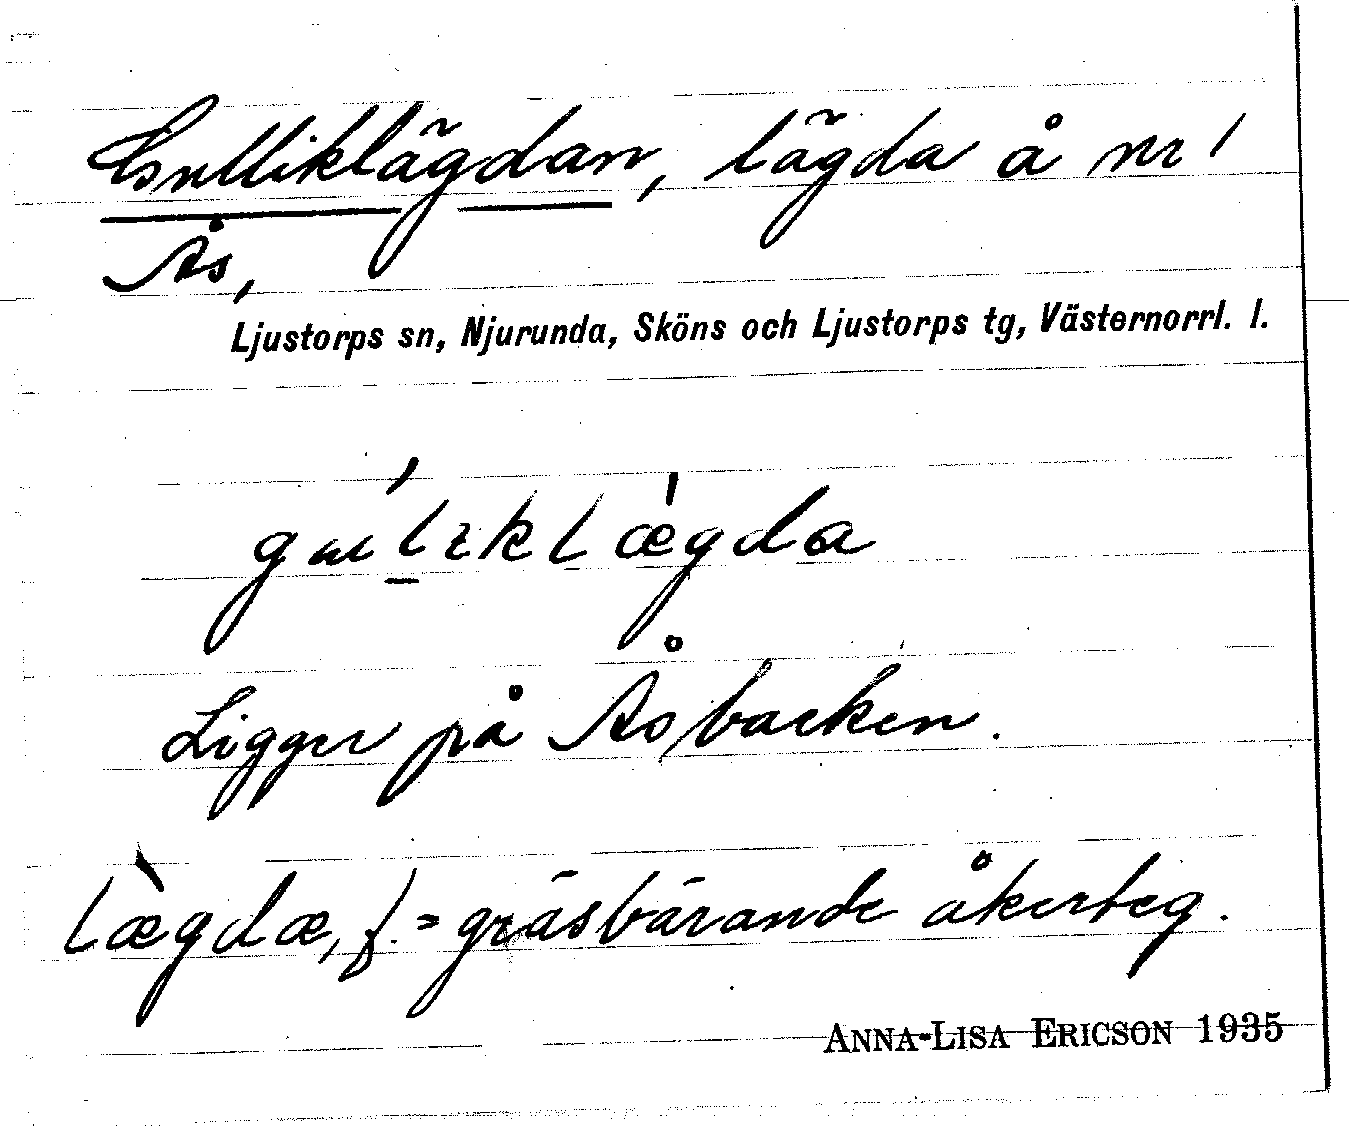 Gulliklägdan, lägda å nr 1
Ås,
Ljustorps sn, Njurunda, Sköns och Ljustorps tg, Västernorrl. l.
gulɩklægda
Ligger på Åsbacken.
lægdæ, f. = gräsbärande åkerteg.
ANNA-LISA ERICSON 1935